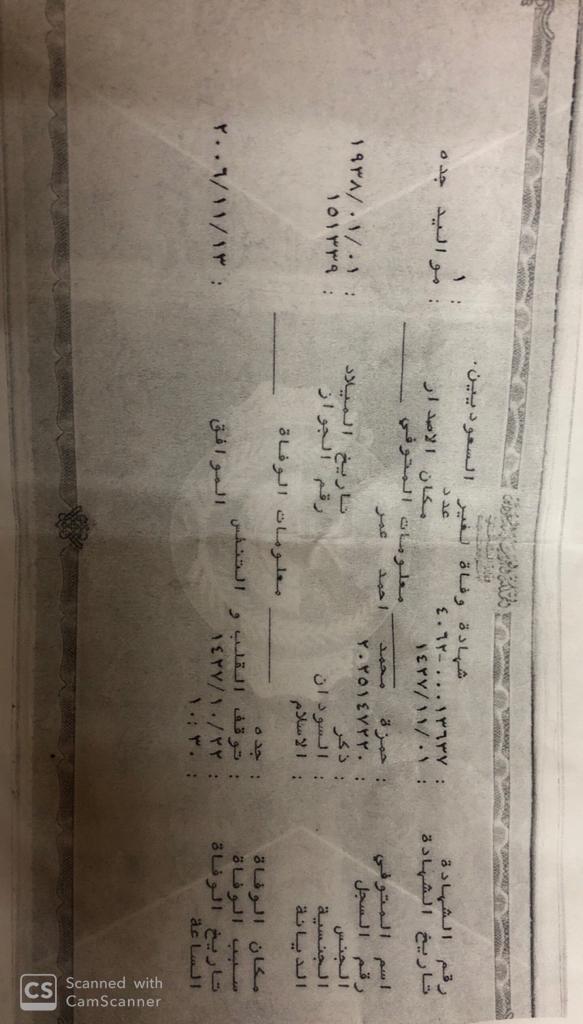 شهادة وفاة لغير السعوديين.
رقم الشهادة : ٤٠٦٢-٠٠٠١٣٦٣٧ عدد : ١
تاريخ الشهادة : ١٤٢٧/١١/٠١ مكان الاصدار : مواليد جده
معلومات المتوفي
اسم المتوفي : حمزة محمد احمد عمر
رقم السجل : ٢٠٢٥١٤٧٢٢٠ تاريخ الميلاد : ١٩٣٨/٠١/٠١
الجنس : ذكر رقم الجواز : ١٥١٣٣٩
الجنسية : السودان
الديانة : الاسلام
معلومات الوفاة
مكان الوفاة : جده
سبب الوفاة : توقف القلب و التنفس
تاريخ الوفاة : ١٤٢٧/١٠/٢٢ الموافق : ٢٠٠٦/١١/١٣
الساعة : ١٠:٣٠
CS Scanned with
CamScanner